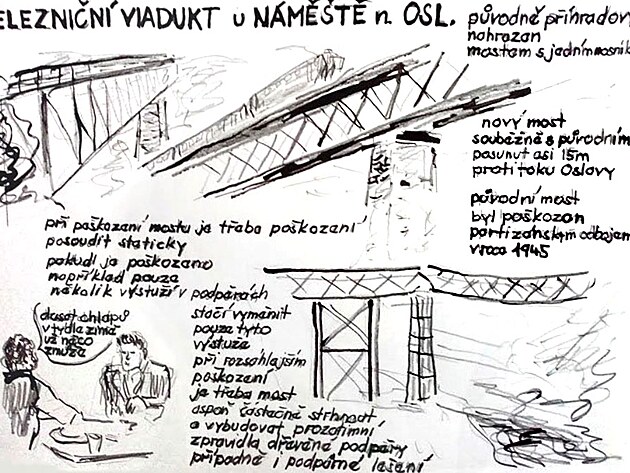 ELEZNIČNÍ VIADUKT u NÁMĚŠTĚ n. OSL.
původně příhradový
nahrazen
mostem s jedním nosník
nový most
souběžně s původním
posunut asi 15m
proti toku Oslavy
původní most
byl poškozen
partizánským odbojem
v roce 1945
při poškození mostu je třeba poškození
posoudit staticky
pokud je poškozeno
například pouze
několik výstuží v podpěrách
stačí vyměnit
pouze tyto
výstuže
při rozsáhlejším
poškození
je třeba most
aspoň částečně strhnout
a vybudovat prozatimní
zpravidla dřevěné podpěry
případně i podpěrné lešení
deset chlapů
v týdla zimě
už něco
zmůže